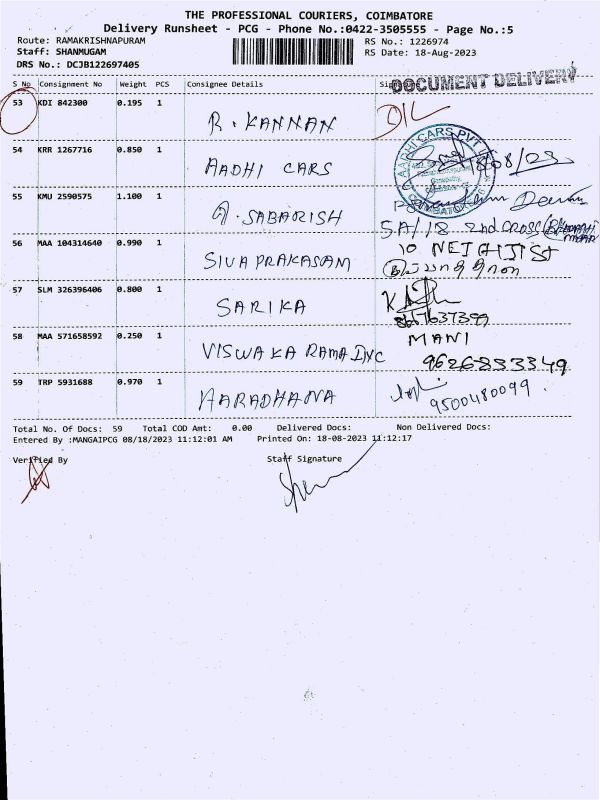 THE PROFESSIONAL COURIERS, COIMBATORE
Delivery Runsheet - PCG - Phone No.:0422-3505555 - Page No.:5
Route: RAMAKRISHNAPURAM
RS No.: 1226974
Staff: SHANMUGAM
RS Date: 18-Aug-2023
DRS No.: DCJB122697405
DOCUMENT DELIVERY
S No Consignment No Weight PCS Consignee Details
53 KDI 842300 0.195 1 R. KANNAN
54 KRR 1267716 0.850 1 AADHI CARS
AADHI CARS PVT
COIMBATORE
18/08/23
55 KMU 2590575 1.100 1 A. SABARISH
5A/18 2nd CROSS
56 MAA 104314640 0.990 1 SIVA PRAKASAM
10 NETHAJI ST
57 SLM 326396406 0.800 1 SARIKA
58 MAA 571658592 0.250 1 VISWAKARAMA INC MANI
9626833349
59 TRP 5931688 0.970 1 AARADHANA
9500480099
Total No. Of Docs: 59 Total COD Amt: 0.00 Delivered Docs: Non Delivered Docs:
Entered By :MANGAIPCG 08/18/2023 11:12:01 AM Printed On: 18-08-2023 11:12:17
Verified By Staff Signature